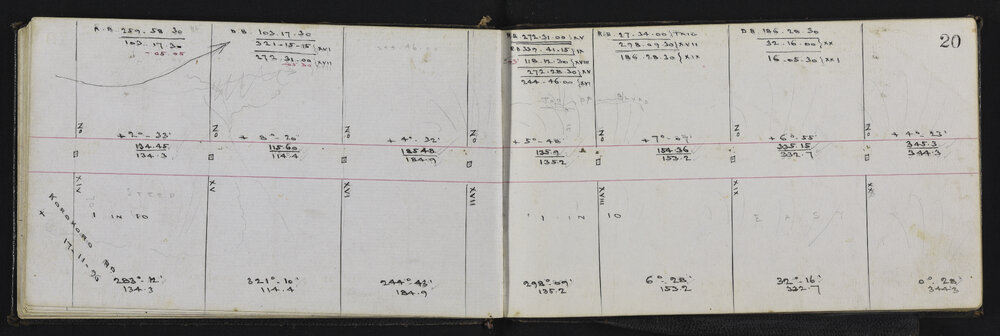 R.B. 259. 58. 30
103. 17. 30
- 05. 05
D.B. 103. 17. 30
321-15-15 }XVI
272. 31. 00 }XVII
05 30
R.B 272. 31. 00 }XV
R.B 339. 41. 15 }IX
118. 12. 30 }XVIII
272. 28. 30 }XV
244. 46. 00 }XVI
R.B. 27. 34. 00 }TRIG
298. 09. 30 }XVII
186. 28. 30 }XIX
D.B. 186. 28. 30
32. 16. 00 }XX
16. 05. 30 }XXI
20
No No No No No No No
+ 2° - 33'
134.45
134.3
+ 8° - 20'
115.60
114.4
+ 4° - 32'
185.48
184.9
+ 5° - 48'
135.9
135.2
+ 7° - 07'
154.36
153.2
+ 6° 55'
335.15
332.7
+ 4° - 23'
345.3
344.3
XIV XV XVI XVII XVIII XIX XX
STEEP
1 IN 50
1 IN 10
EAST
KOROKORO RD
17-11-36
283° - 12'
134.3
321° - 10'
114.4
244° 43'
184.9
298° 09'
135.2
6° - 28'
153.2
32° - 16'
332.7
0° - 28'
344.3